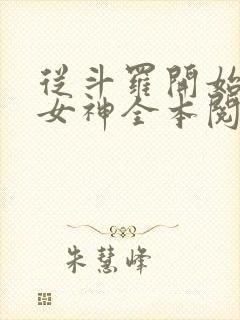 從斗羅開始
女神全本閱
朱慧峰